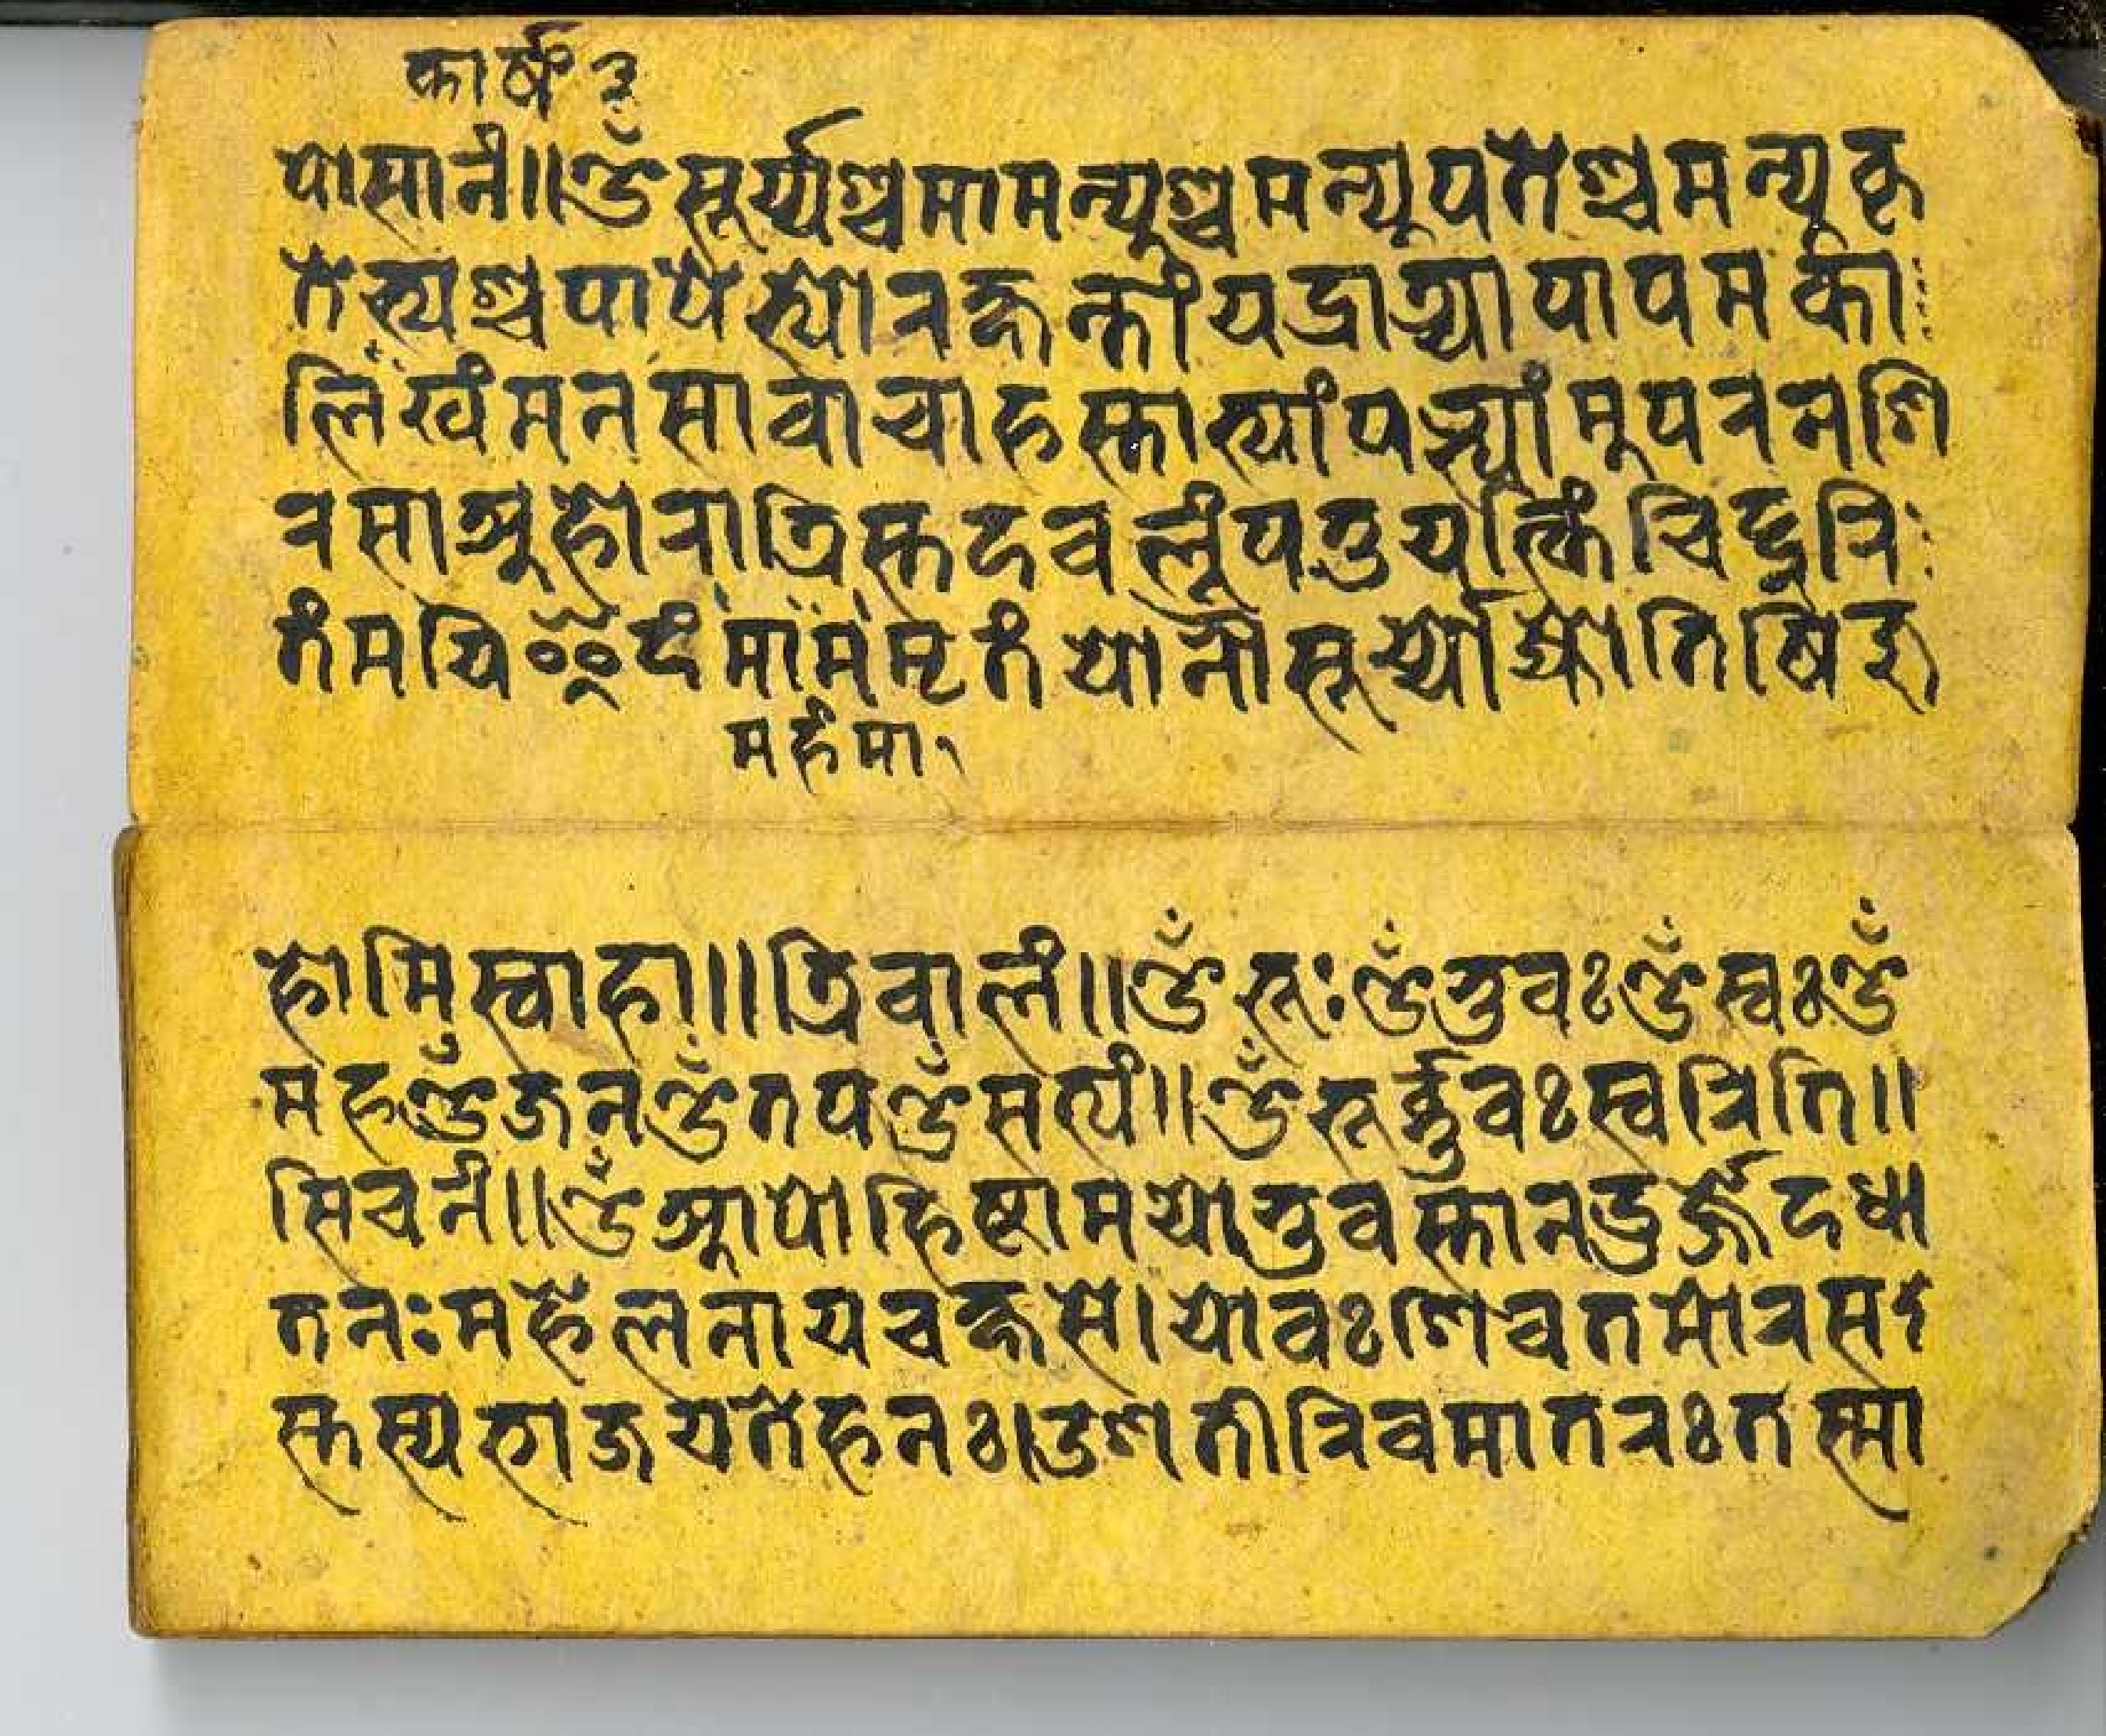 कार्षं ३
पासानं॥ ॐ सूर्य्यश्च मा मन्युश्च मन्यूपतेश्च मन्यूकृ
तेभ्यश्च पापेभ्यो रक्षन्तां यद्रात्र्या पापमका
लिखं मनसा वाचा हस्ताभ्यां पद्भ्यां मूपरनशि
रसाञूहोरात्रिस्तदवलूंपतुयत्किं चिद्दुरि
तं मयि ꣸ दं मामंमृतं यानौ सूर्य्यो ज्योतिषि जु
महंमा
होमि स्वाहा॥ त्रिवालं॥ ॐ भूः ॐ भुवः ॐ स्वः ॐ
मह ॐ जन ॐ तप ॐ सत्यं॥ ॐ भूर्भुवः स्वरिति॥
सिचनं॥ ॐ आपोहिष्ठामयोभुवस्तानउर्ज्जेदधा
तनः महेलनायचक्षसे। योवः शिवतमोरस
स्तस्यभाजयतेहनः। उशतीरिवमातरः तस्मा